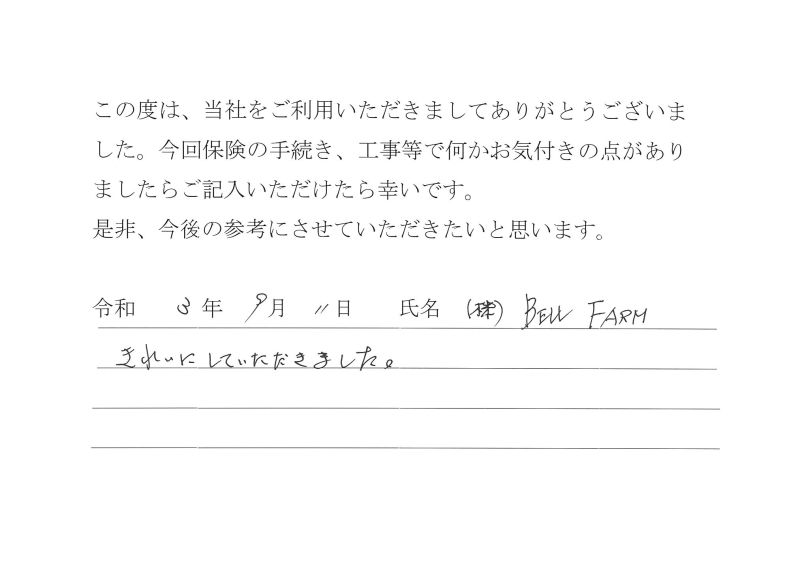 この度は、当社をご利用いただきましてありがとうございま
した。今回保険の手続き、工事等で何かお気付きの点があり
ましたらご記入いただけたら幸いです。
是非、今後の参考にさせていただきたいと思います。
令和 3年 9月 11日 氏名 (株) BELL FARM
きれいにしていただきました。